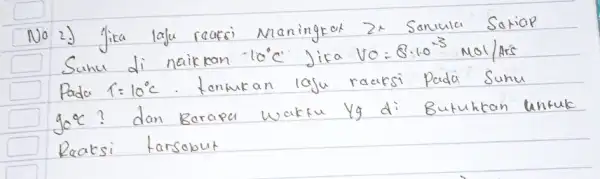 No 2.) Jika laju reaksi Meningkat 2x Semula Setiap
Suhu di naikkan 10°C Jika V0 = 8.10⁻³ Mol/Ars
Pada T = 10°C. tentukan laju reaksi pada Suhu
90°C ? dan Berapa waktu yg di Butuhkan untuk
Reaksi tersebut